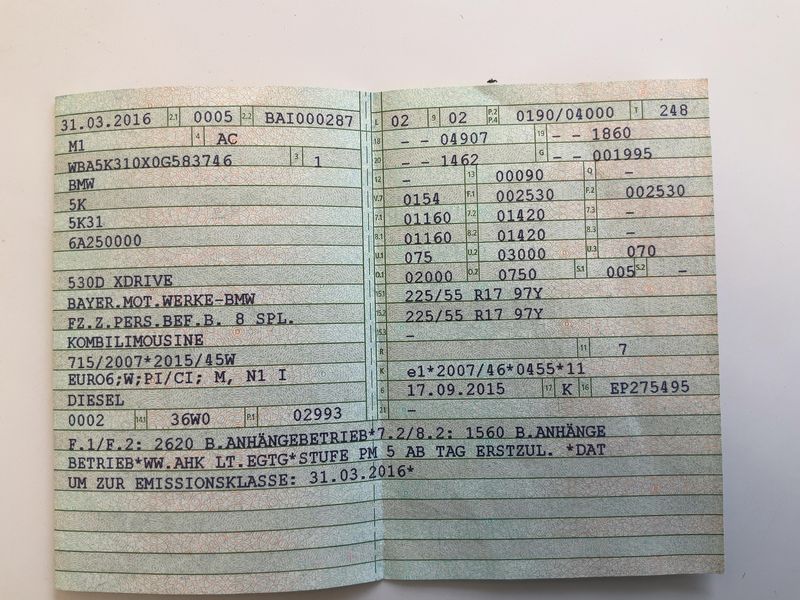 31.03.2016 2.1 0005 2.2 BAI000287
M1 4 AC
WBA5K310X0G583746 3 1
BMW
5K
5K31
6A250000
530D XDRIVE
BAYER.MOT.WERKE-BMW
FZ.Z.PERS.BEF.B. 8 SPL.
KOMBILIMOUSINE
715/2007*2015/45W
EURO6;W;PI/CI; M, N1 I
DIESEL
0002 14.1 36W0 P.1 02993
L 02 9 02 P.2 P.4 0190/04000 T 248
18 - - 04907 19 - - 1860
20 - - 1462 G - - 001995
12 - 13 00090 Q -
V.7 0154 F.1 002530 F.2 002530
7.1 01160 7.2 01420 7.3 -
8.1 01160 8.2 01420 8.3 -
U.1 075 U.2 03000 U.3 070
O.1 02000 O.2 0750 S.1 005 S.2 -
15.1 225/55 R17 97Y
15.2 225/55 R17 97Y
15.3 -
R 11 7
K e1*2007/46*0455*11
6 17.09.2015 17 K 16 EP275495
21 -
F.1/F.2: 2620 B.ANHÄNGEBETRIEB*7.2/8.2: 1560 B.ANHÄNGE
BETRIEB*WW.AHK LT.EGTG*STUFE PM 5 AB TAG ERSTZUL. *DAT
UM ZUR EMISSIONSKLASSE: 31.03.2016*